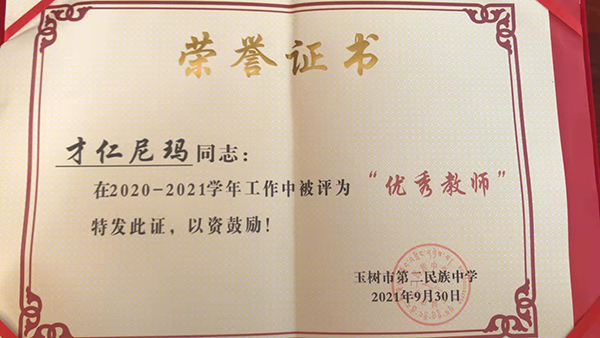 荣誉证书
才仁尼玛同志：
在2020-2021学年工作中被评为“优秀教师”
特发此证，以资鼓励！
玉树市第二民族中学
2021年9月30日